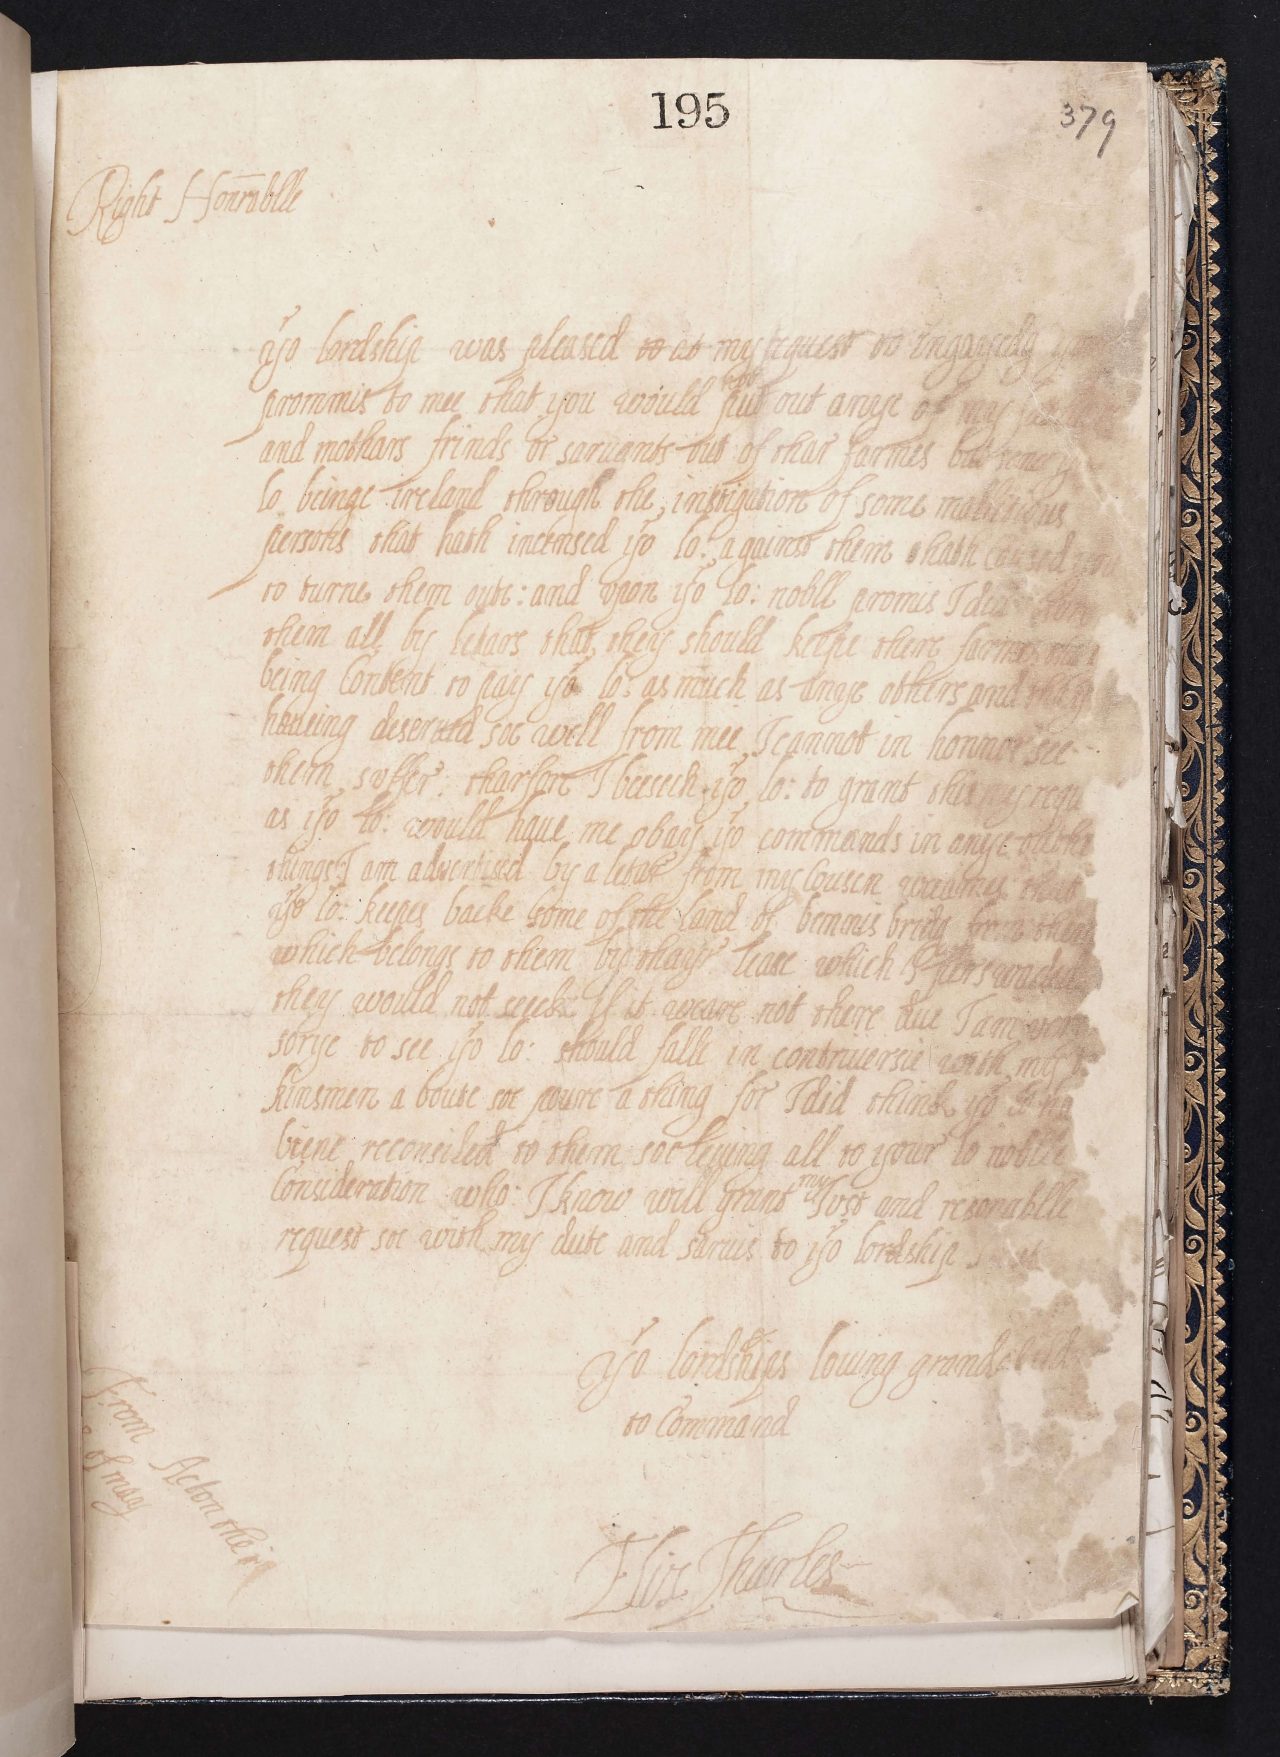 195
379
Right Honrablle
yor lordship was pleased to at my request to ingagedg
prommis to mee that you would not put out anye of my
and mothars frinds or saruants out of thar farmes but
lo beinge ireland through the instigution of some mallitious
persons that hath incensed yor lo: against them hath caused you
to turne them oute: and vpon yor lo: noblle promis I did
them all by letars that they should keepe there farmes
being Content to pay yor lo: as much as anye others and they
haueing deserud soe well from mee I cannot in honnor see
them suffer: tharfore I beesech yor lo: to grant this my requ
as yor lo: would haue me obay yor commands in anye othe
things: I am advertised by a letar from my Cousen that
yor lo: keepes backe some of the land of bennis bridg from them
which belongs to them by thayr lease which I perswaded
they would not seeke if it weare not there due I am
sorye to see yor lo: should falle in contruversie with my
kinsmen a boute soe poure a thing for I did think yor lo
biene reconsiled to them soe leuing all to your lo noblle
Consideration who I know will grant my Iust and resonablle
request soe with my dute and saruis to yor lordship
yor lordships louing grand
to Command
Eliz Thurles
From Acton the
of may